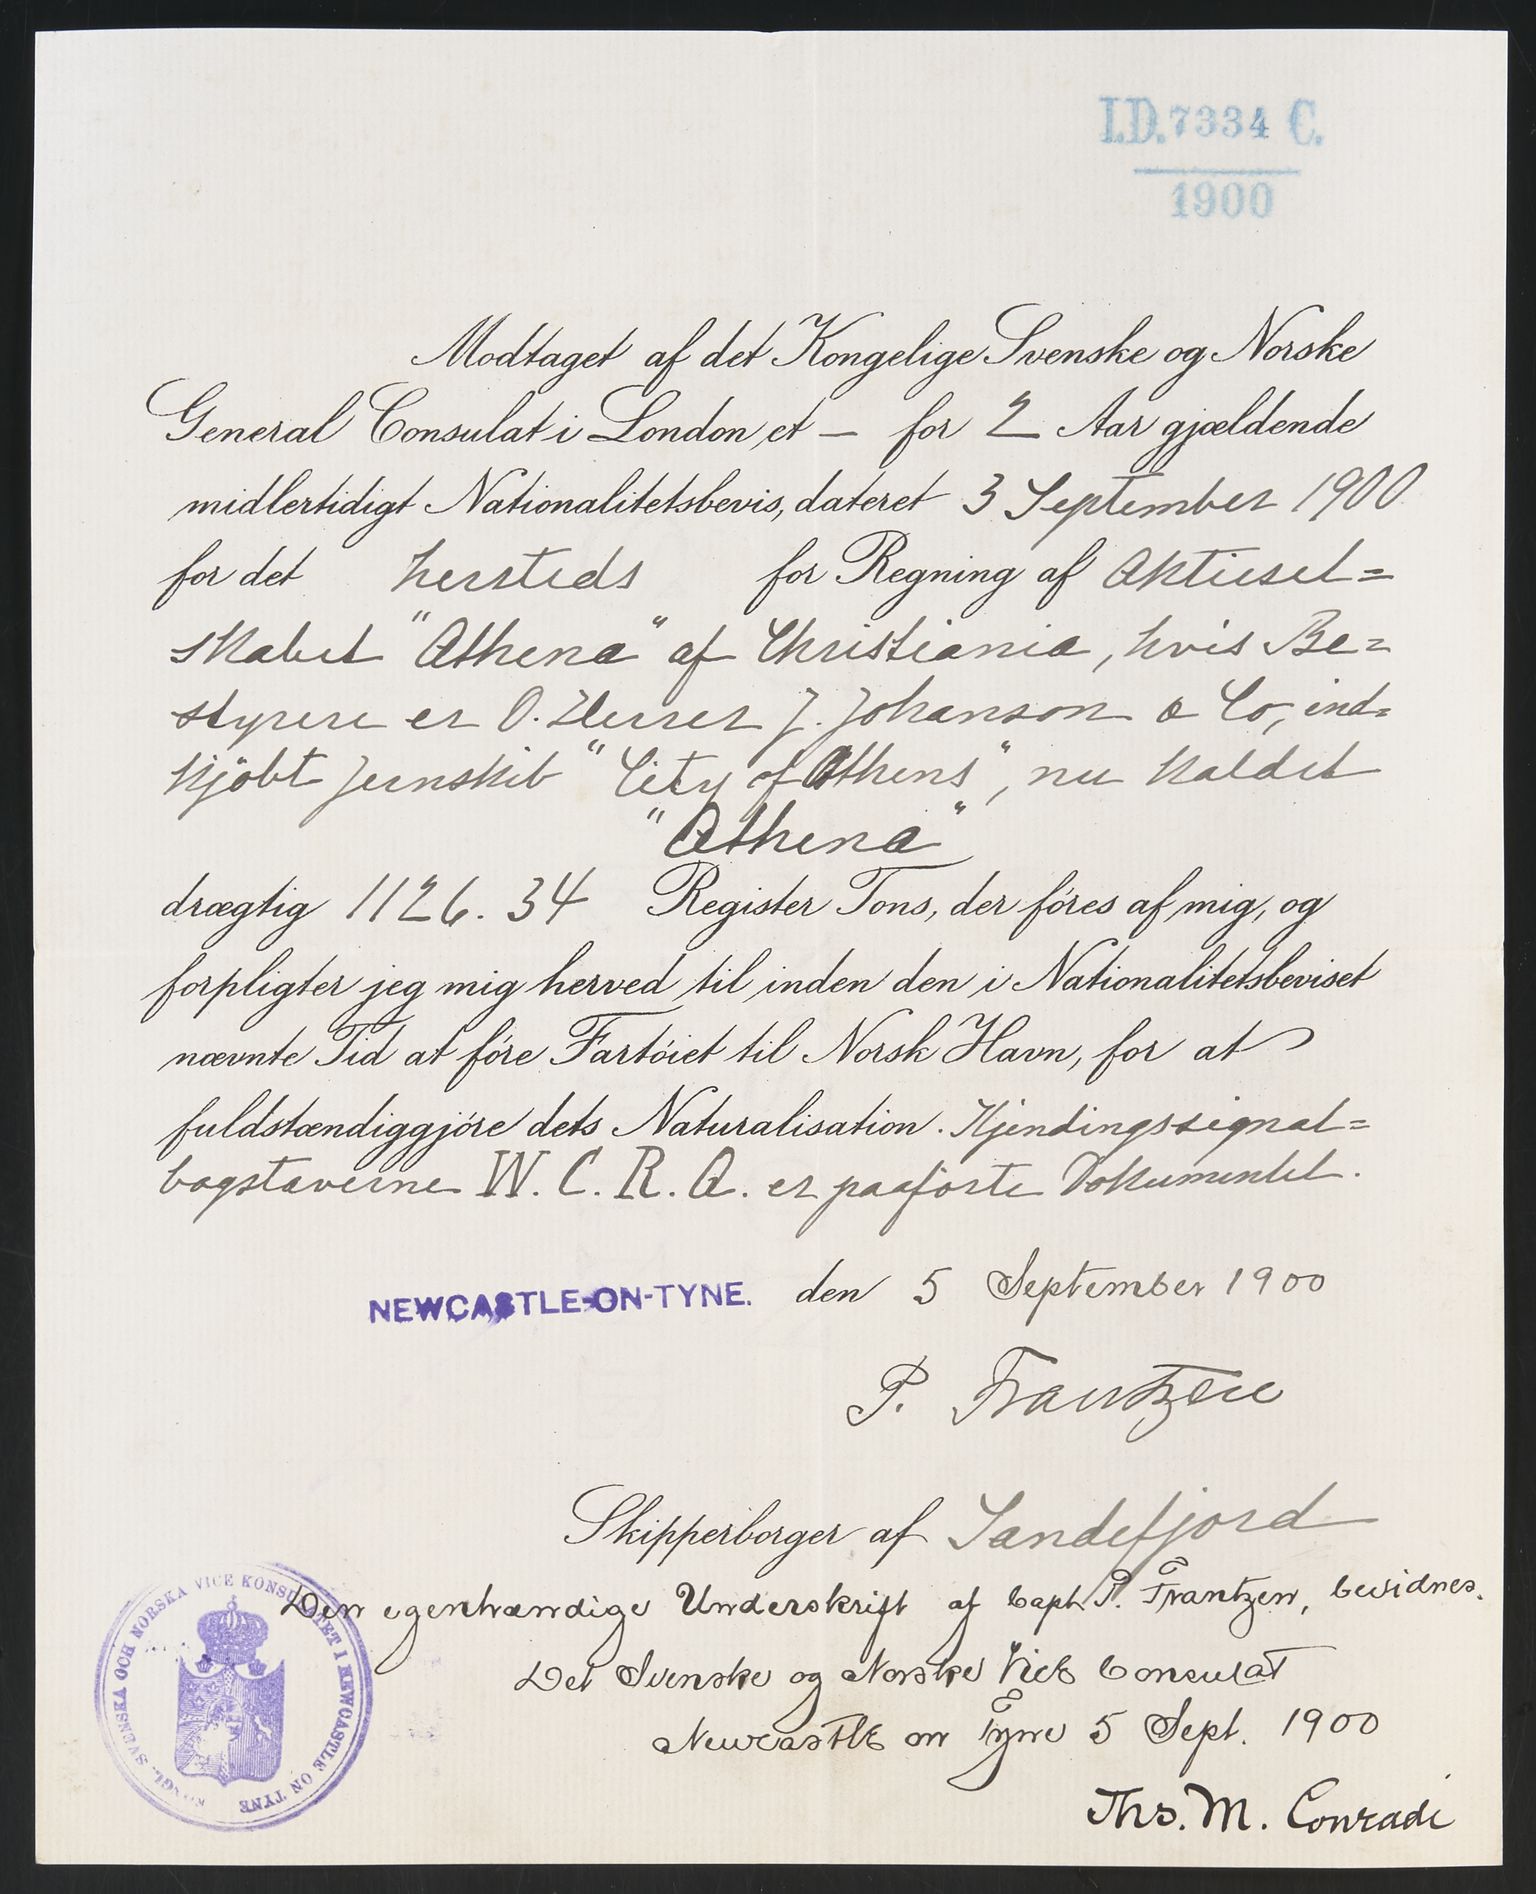 I.D. 7334 C.
1900
Modtaget af det Kongelige Svenske og Norske
General Consulat i London et — for 2 Aar gjældende
midlertidigt Nationalitetsbevis, dateret 3 September 1900
for det hersteds for Regning af Aktiesel=
skabet "Athena" af Christiania, hvis Be=
styrere er O. Herrer J. Johanson & Co, ind=
kjöbt Jernskib "City of Athens", nu kaldet
"Athena"
drægtig 1126.34 Register Tons, der föres af mig, og
forpligter jeg mig herved til inden den i Nationalitetsbeviset
nævnte Tid at före Fartöiet til Norsk Havn, for at
fuldstændiggjöre dets Naturalisation. Kjendingssignal=
bogstaverne W. C. R. Q. er paaförte Dokumentet.
NEWCASTLE-ON-TYNE. den 5 September 1900
P. Frantzen
Skipperborger af Sandefjord
Den egenhændige Underskrift af Capt. P. Frantzen, bevidnes.
Det Svenske og Norske Vice Consulat
Newcastle on Tyne 5 Sept. 1900
Ths. M. Conradi
KONGL. SVENSKA OCH NORSKA VICE KONSULATET I NEWCASTLE ON TYNE